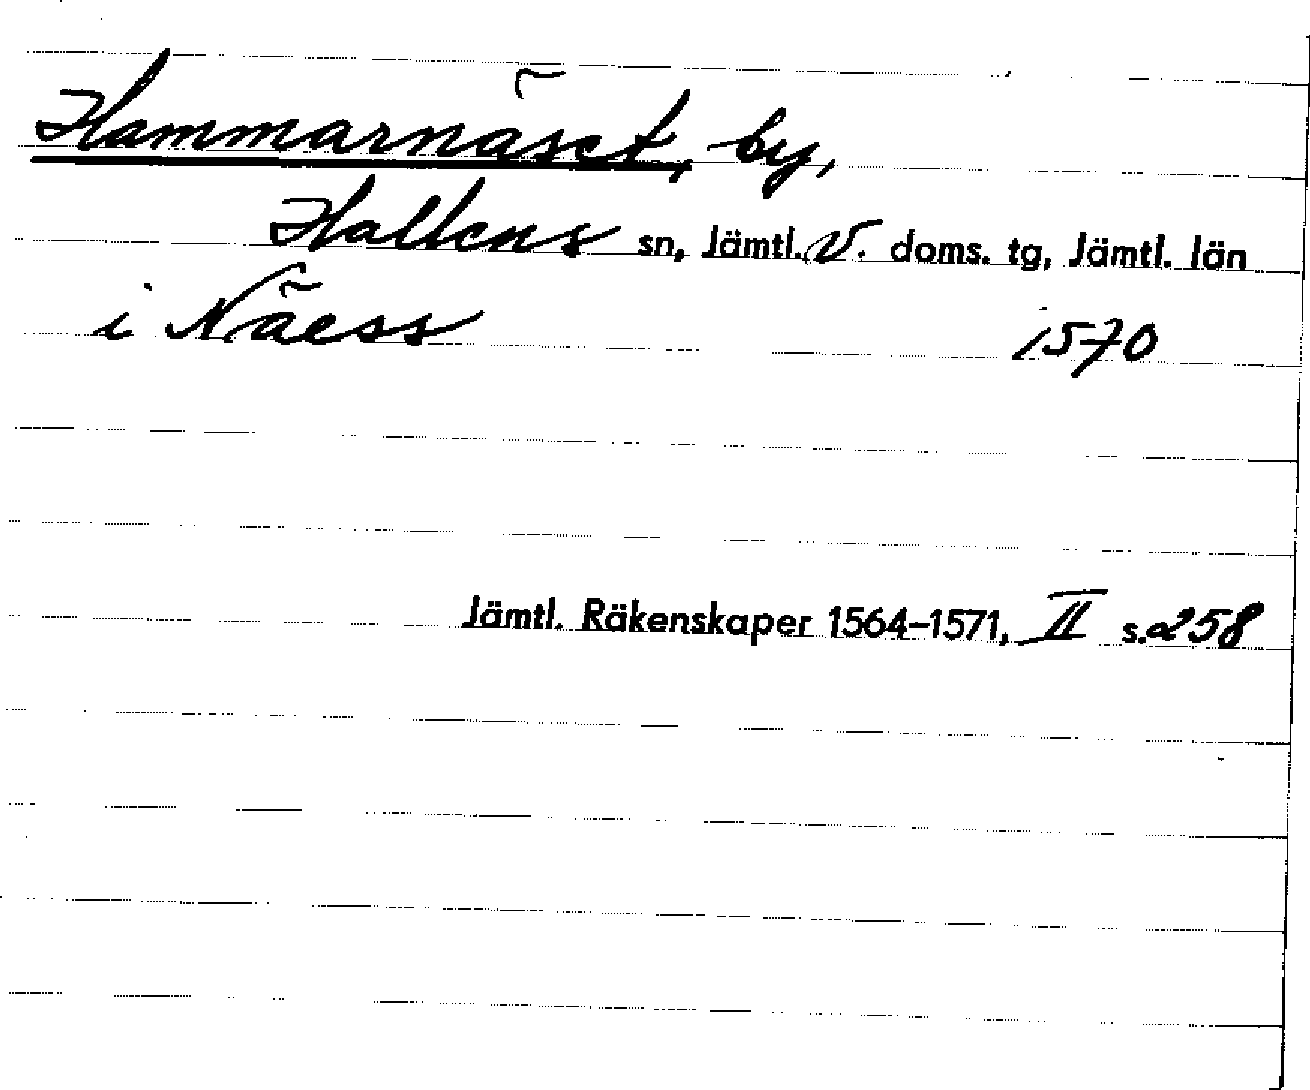 Hammarnäset, by,
Hallens sn, Jämtl. V. doms. tg, Jämtl. län
i Näess 1570
Jämtl. Räkenskaper 1564–1571, II s. 258